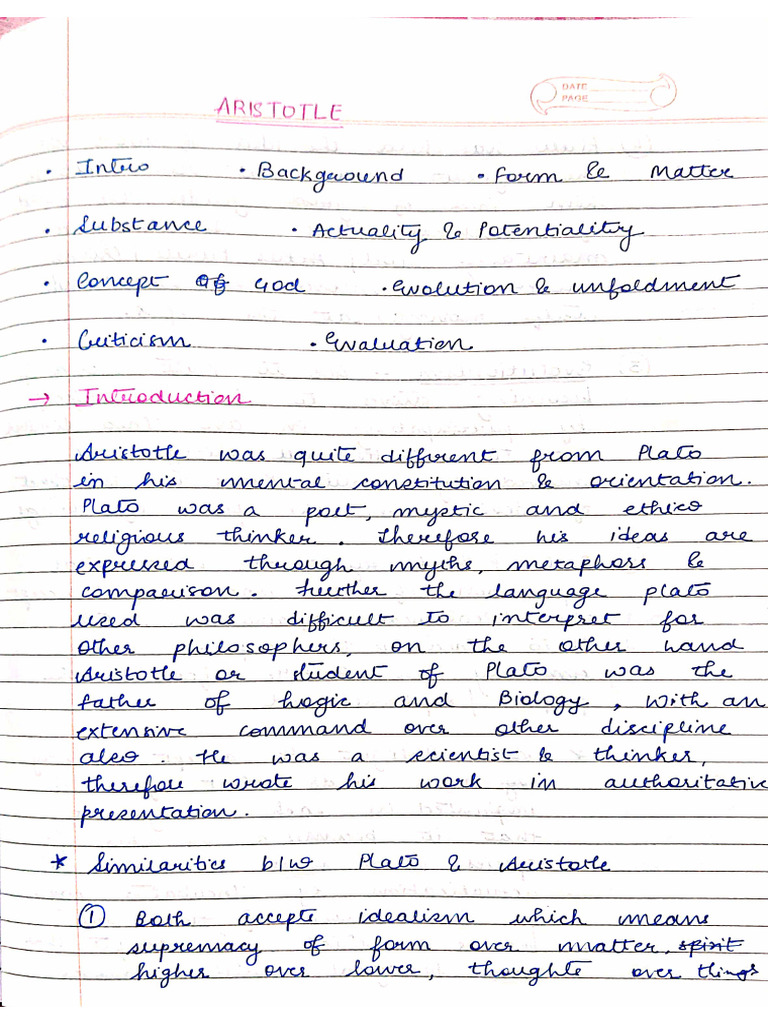 DATE
PAGE
ARISTOTLE
• Intro • Background • Form & Matter
• Substance • Actuality & Potentiality
• Concept of God • Evolution & unfoldment
• Criticism • Evaluation
→ Introduction
Aristotle was quite different from Plato
in his mental constitution & orientation.
Plato was a poet, mystic and ethico
religious thinker. Therefore his ideas are
expressed through myths, metaphors &
comparison. Further the language plato
used was difficult to interpret for
other philosophers, on the other hand
Aristotle or student of Plato was the
father of Logic and Biology, with an
extensive command over other discipline
also. He was a scientist & thinker,
therefore wrote his work in authoritative
presentation.
* Similarities b/w Plato & Aristotle
① Both accepts idealism which means
supremacy of form over matter, spirit
higher over lower, thoughts over things